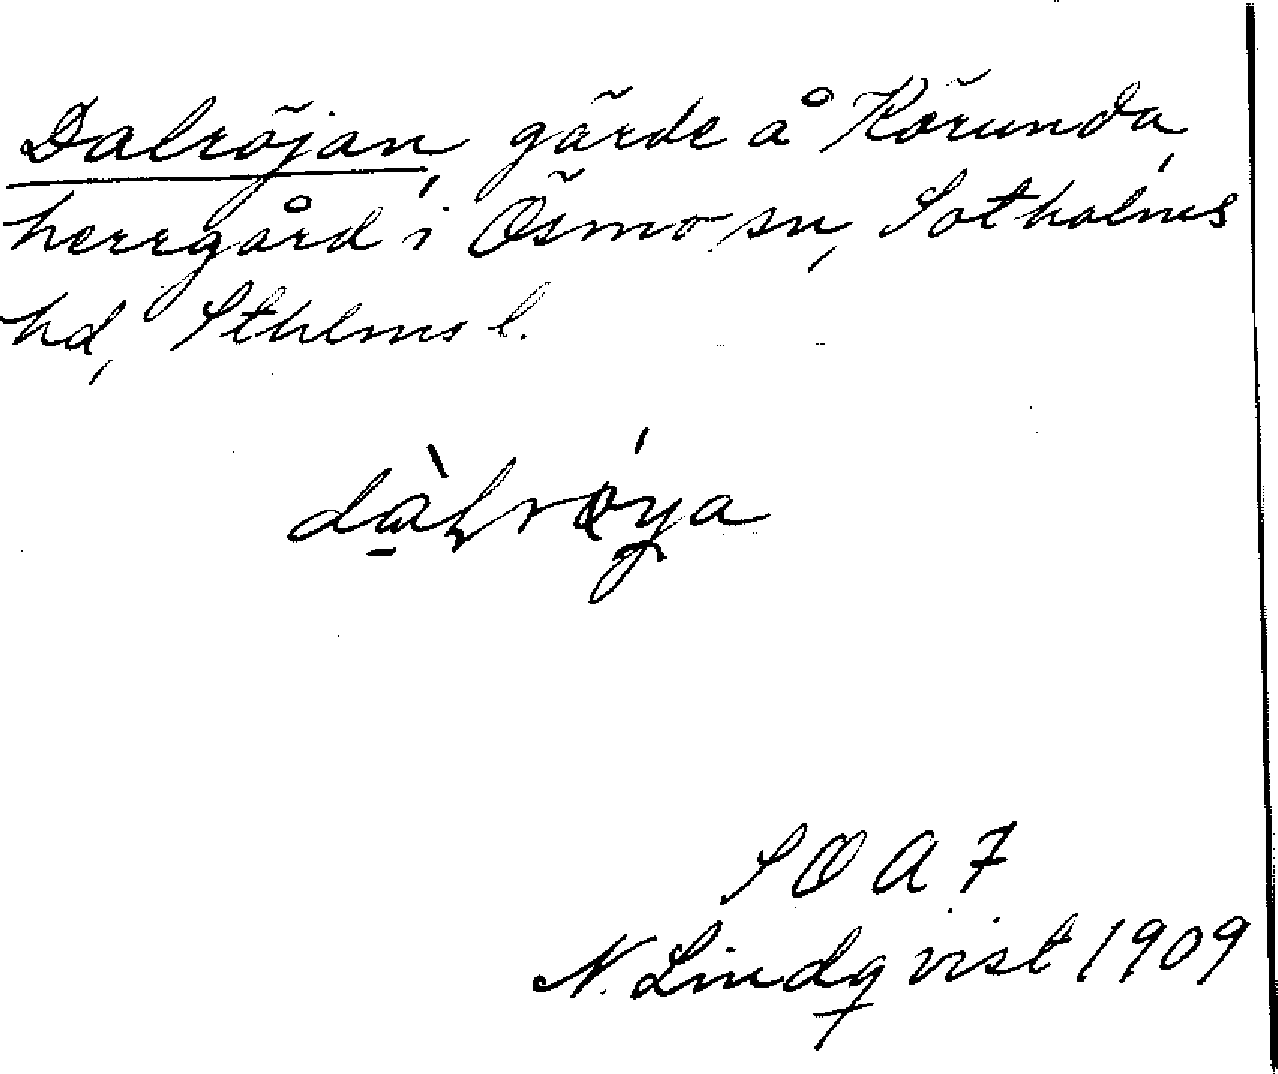 Dalröjan, gärde å Körunda,
herrgård i Ösmo sn, Sotholms
hd, Sthlms l.
SOA 7
N. Lindqvist 1909